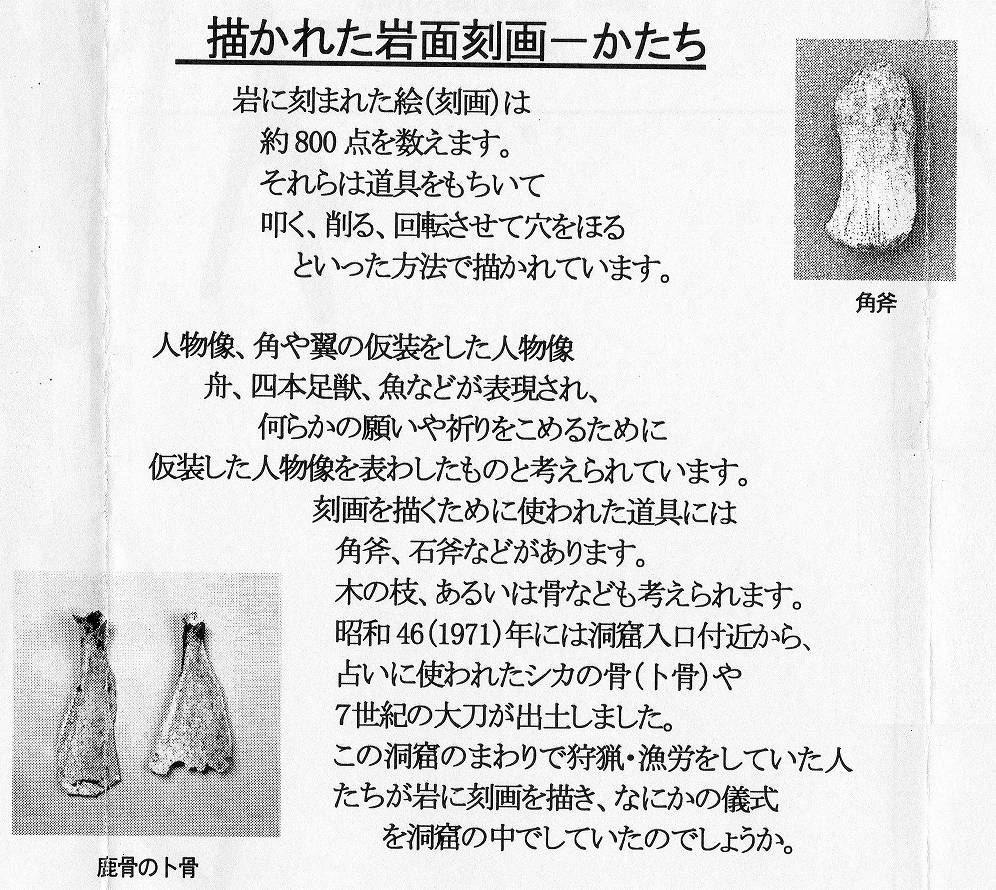 描かれた岩面刻画－かたち
岩に刻まれた絵(刻画)は
約800点を数えます。
それらは道具をもちいて
叩く、削る、回転させて穴をほる
といった方法で描かれています。
角斧
人物像、角や翼の仮装をした人物像
舟、四本足獣、魚などが表現され、
何らかの願いや祈りをこめるために
仮装した人物像を表わしたものと考えられています。
刻画を描くために使われた道具には
角斧、石斧などがあります。
木の枝、あるいは骨なども考えられます。
昭和46(1971)年には洞窟入口付近から、
占いに使われたシカの骨(卜骨)や
７世紀の大刀が出土しました。
この洞窟のまわりで狩猟・漁労をしていた人
たちが岩に刻画を描き、なにかの儀式
を洞窟の中でしていたのでしょうか。
鹿骨の卜骨